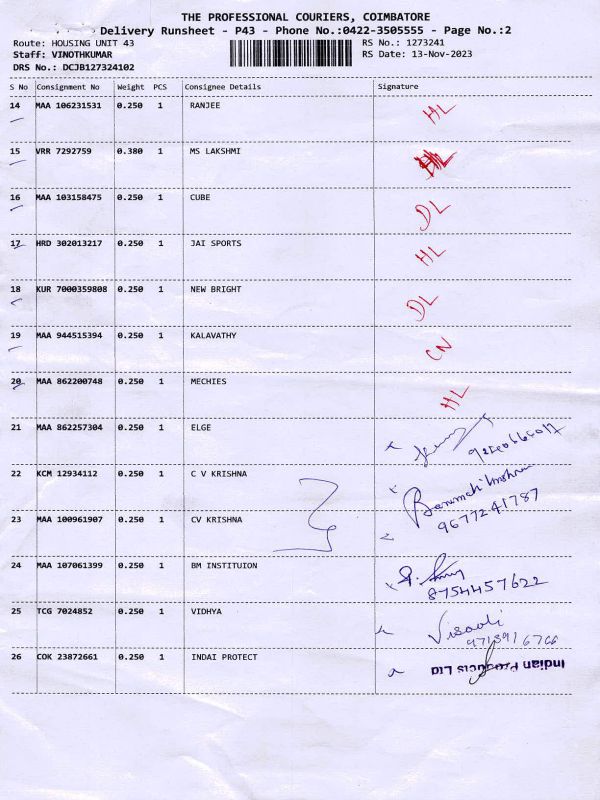 THE PROFESSIONAL COURIERS, COIMBATORE
Delivery Runsheet - P43 - Phone No.:0422-3505555 - Page No.:2
Route: HOUSING UNIT 43 RS No.: 1273241
Staff: VINOTHKUMAR RS Date: 13-Nov-2023
DRS No.: DCJB127324102
S No Consignment No Weight PCS Consignee Details Signature
14 MAA 106231531 0.250 1 RANJEE HL
15 VRR 7292759 0.380 1 MS LAKSHMI
16 MAA 103158475 0.250 1 CUBE DL
17 HRD 302013217 0.250 1 JAI SPORTS HL
18 KUR 7000359808 0.250 1 NEW BRIGHT DL
19 MAA 944515394 0.250 1 KALAVATHY CN
20 MAA 862200748 0.250 1 MECHIES HL
21 MAA 862257304 0.250 1 ELGE
22 KCM 12934112 0.250 1 C V KRISHNA
23 MAA 100961907 0.250 1 CV KRISHNA 9677241787
24 MAA 107061399 0.250 1 BM INSTITUION 8754457622
25 TCG 7024852 0.250 1 VIDHYA
26 COK 23872661 0.250 1 INDAI PROTECT Indian Products Ltd